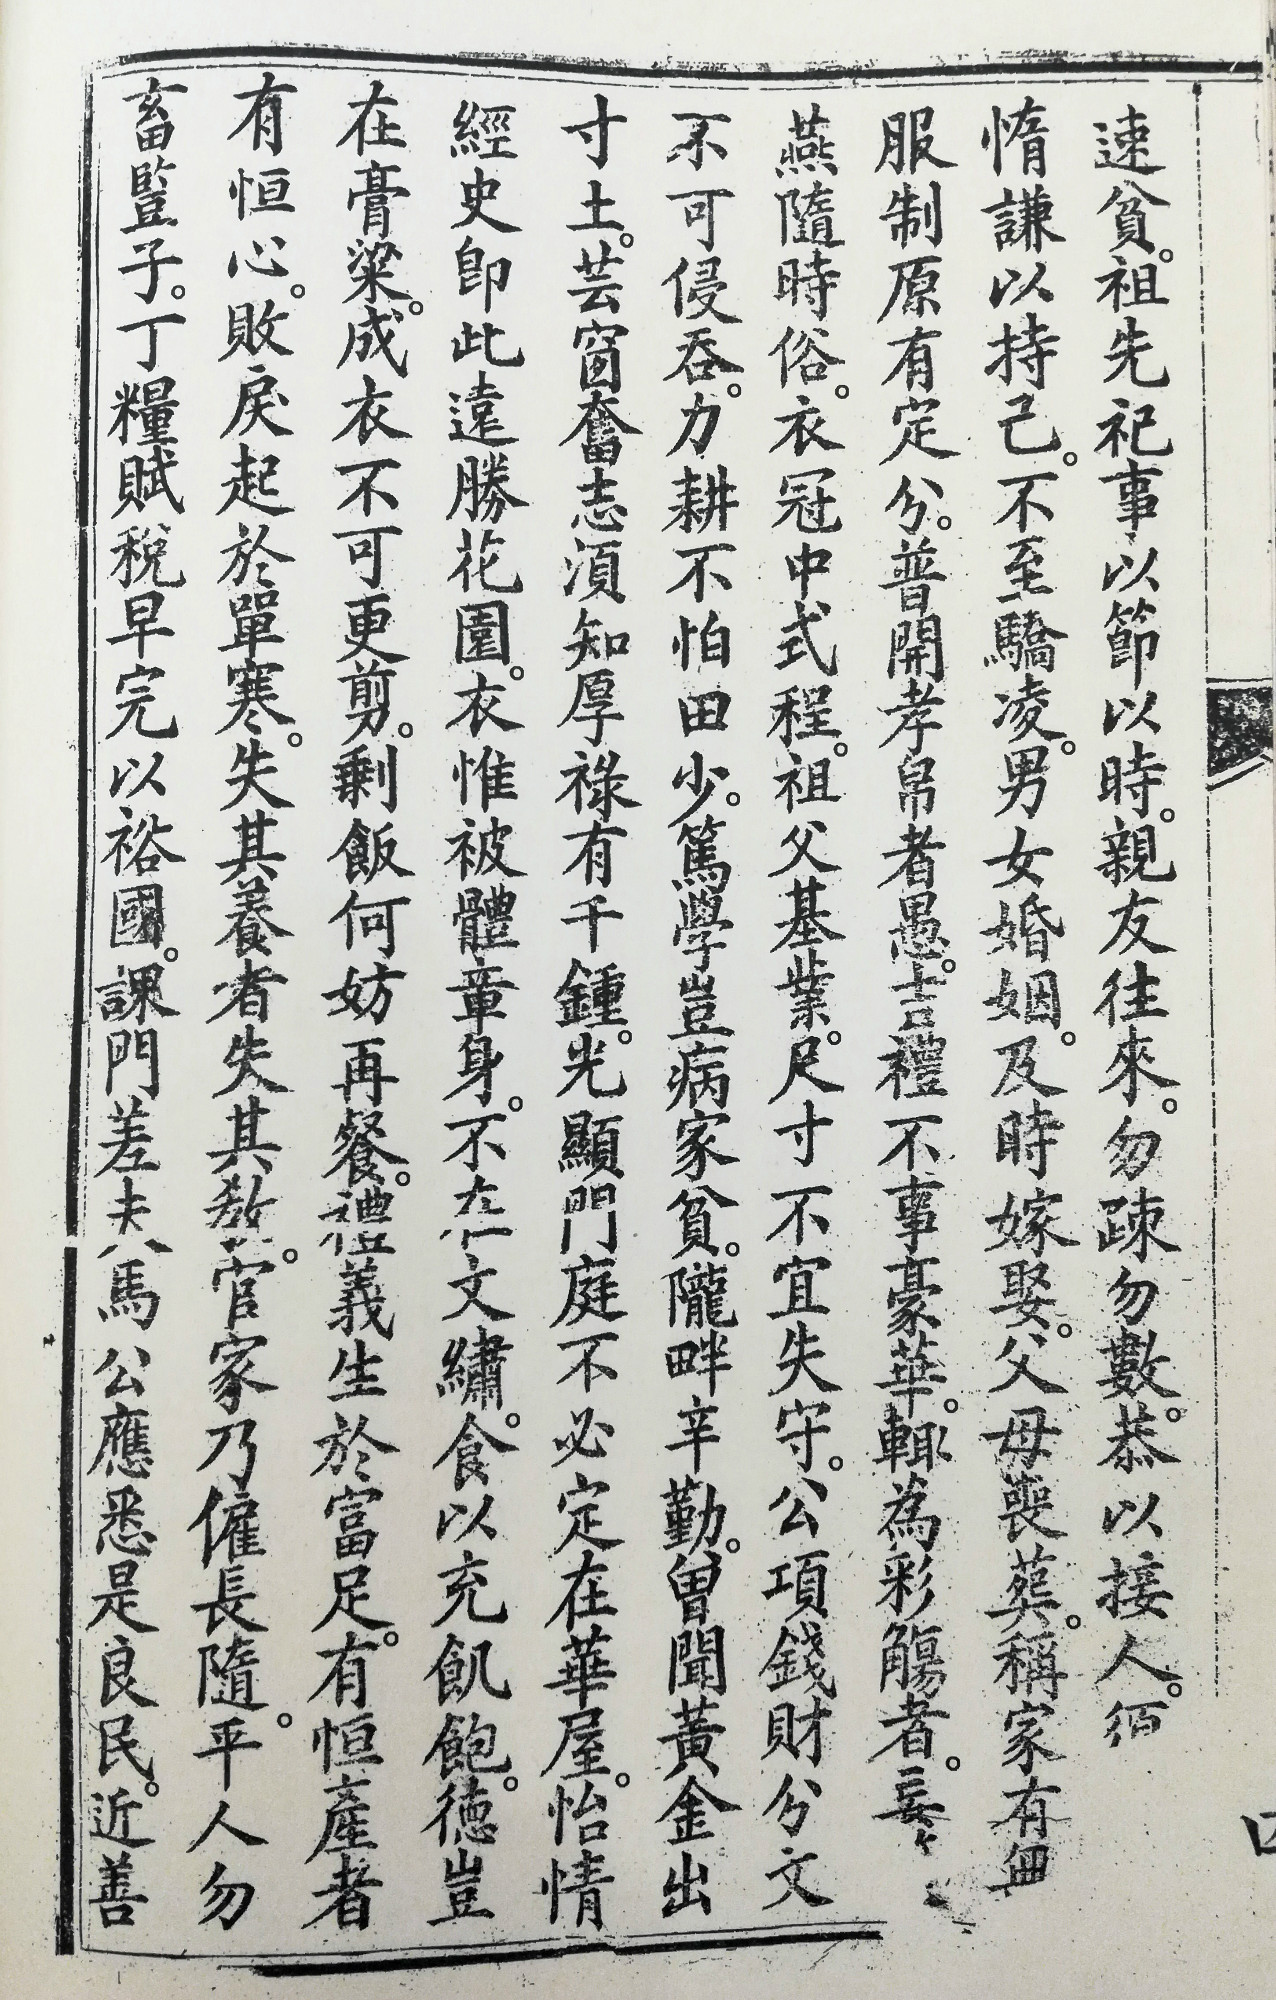 速貧。祖先祀事以節以時。親友往來。勿疎勿數。恭以接人。須
惰謙以持己。不至驕凌。男女婚姻。及時嫁娶。父母喪葬。稱家有無
服制原有定分。普開孝帛者愚。吉禮不事豪華。輙為彩觴者。妄
燕隨時俗。衣冠中式程。祖父基業。尺寸不宜失守。公項錢財分文
不可侵吞。力耕不怕田少。篤學豈病家貧。隴畔辛勤。曾聞黃金出
寸土。芸窗奮志須知厚祿有千鍾。光顯門庭不必定在華屋。怡情
經史卽此遠勝花園。衣惟被體章身。不在文繡。食以充飢飽。德豈
在膏粱。成衣不可更剪。剩飯何妨再餐。禮義生於富足。有恒產者
有恒心。敗戾起於單寒。失其養者失其教。官家乃僱長隨。平人勿
畜豎子。丁糧賦稅早完以裕國。課門差夫馬公應悉是良民。近善
四